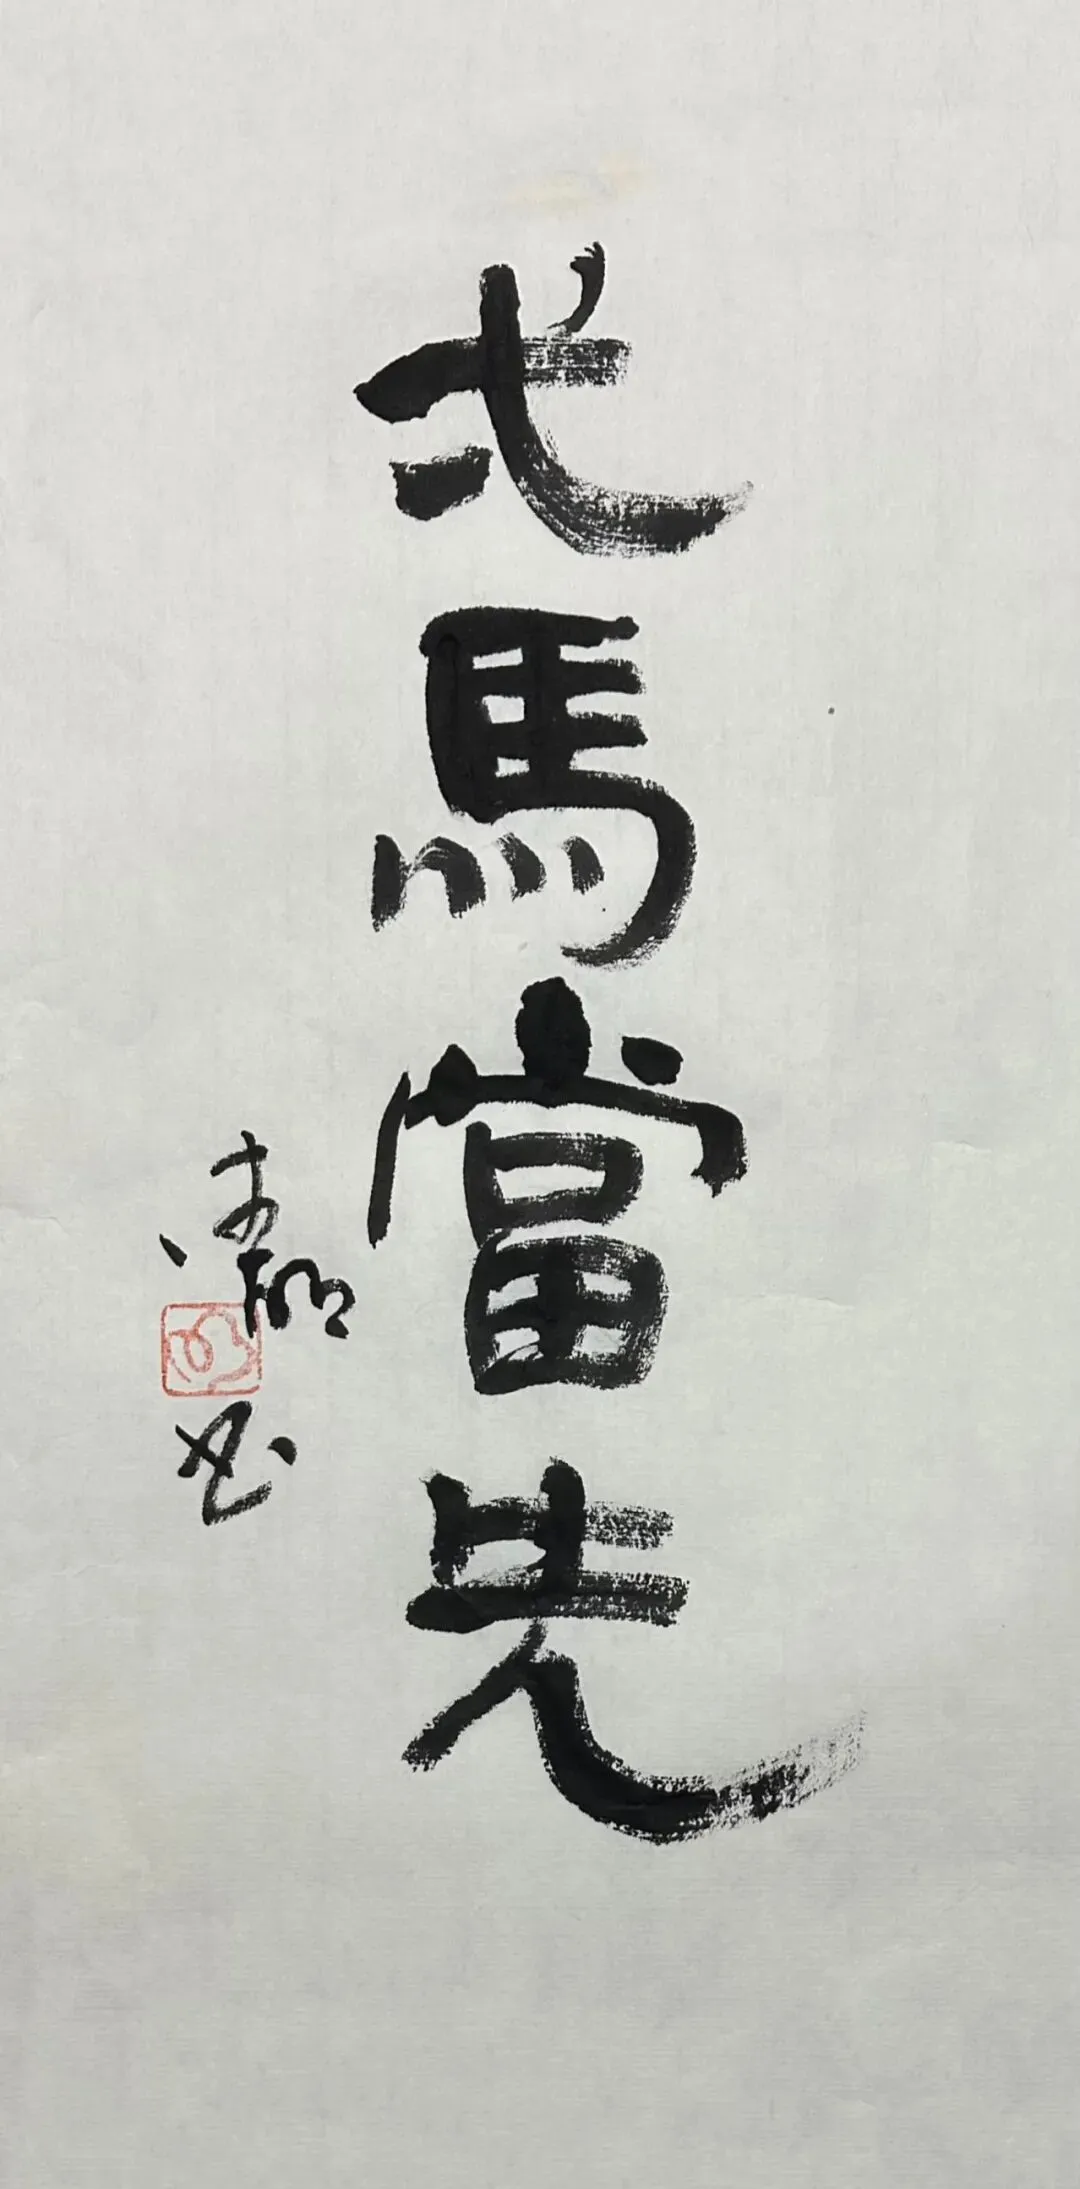 弌馬當先
書